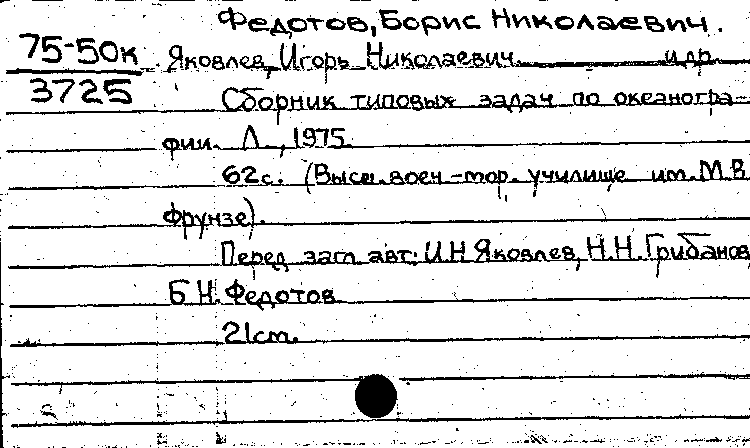 Федотов, Борис Николаевич.
75-50к
3725
Яковлев, Игорь Николаевич и др.
Сборник типовых задач по океаногра-
фии. Л., 1975.
62с. (Высш. воен-мор. училище им. М.В.
Фрунзе).
Перед загл. авт: И.Н. Яковлев, Н.Н. Грибанов
Б.Н. Федотов
21cm.